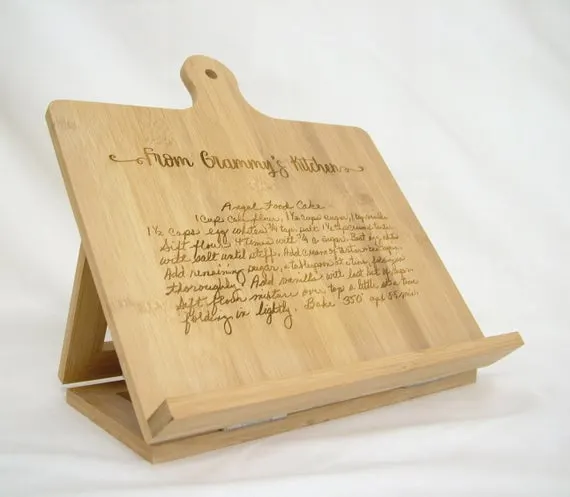 From Grammy's Kitchen
Angel Food Cake
1 cup cake flour, 1½ cups sugar,
1½ cups egg whites, ¾ tsp. salt 1½ tsp cream tartar
Sift flour 4 times with ¾ c sugar. Beat egg whites
with salt until stiff. Add cream of tartar
Add remaining sugar, a tablespoon at a time,
thoroughly. Add vanilla with last
Sift flour mixture over top a little at a time
folding in lightly. Bake 350° apx 55 min